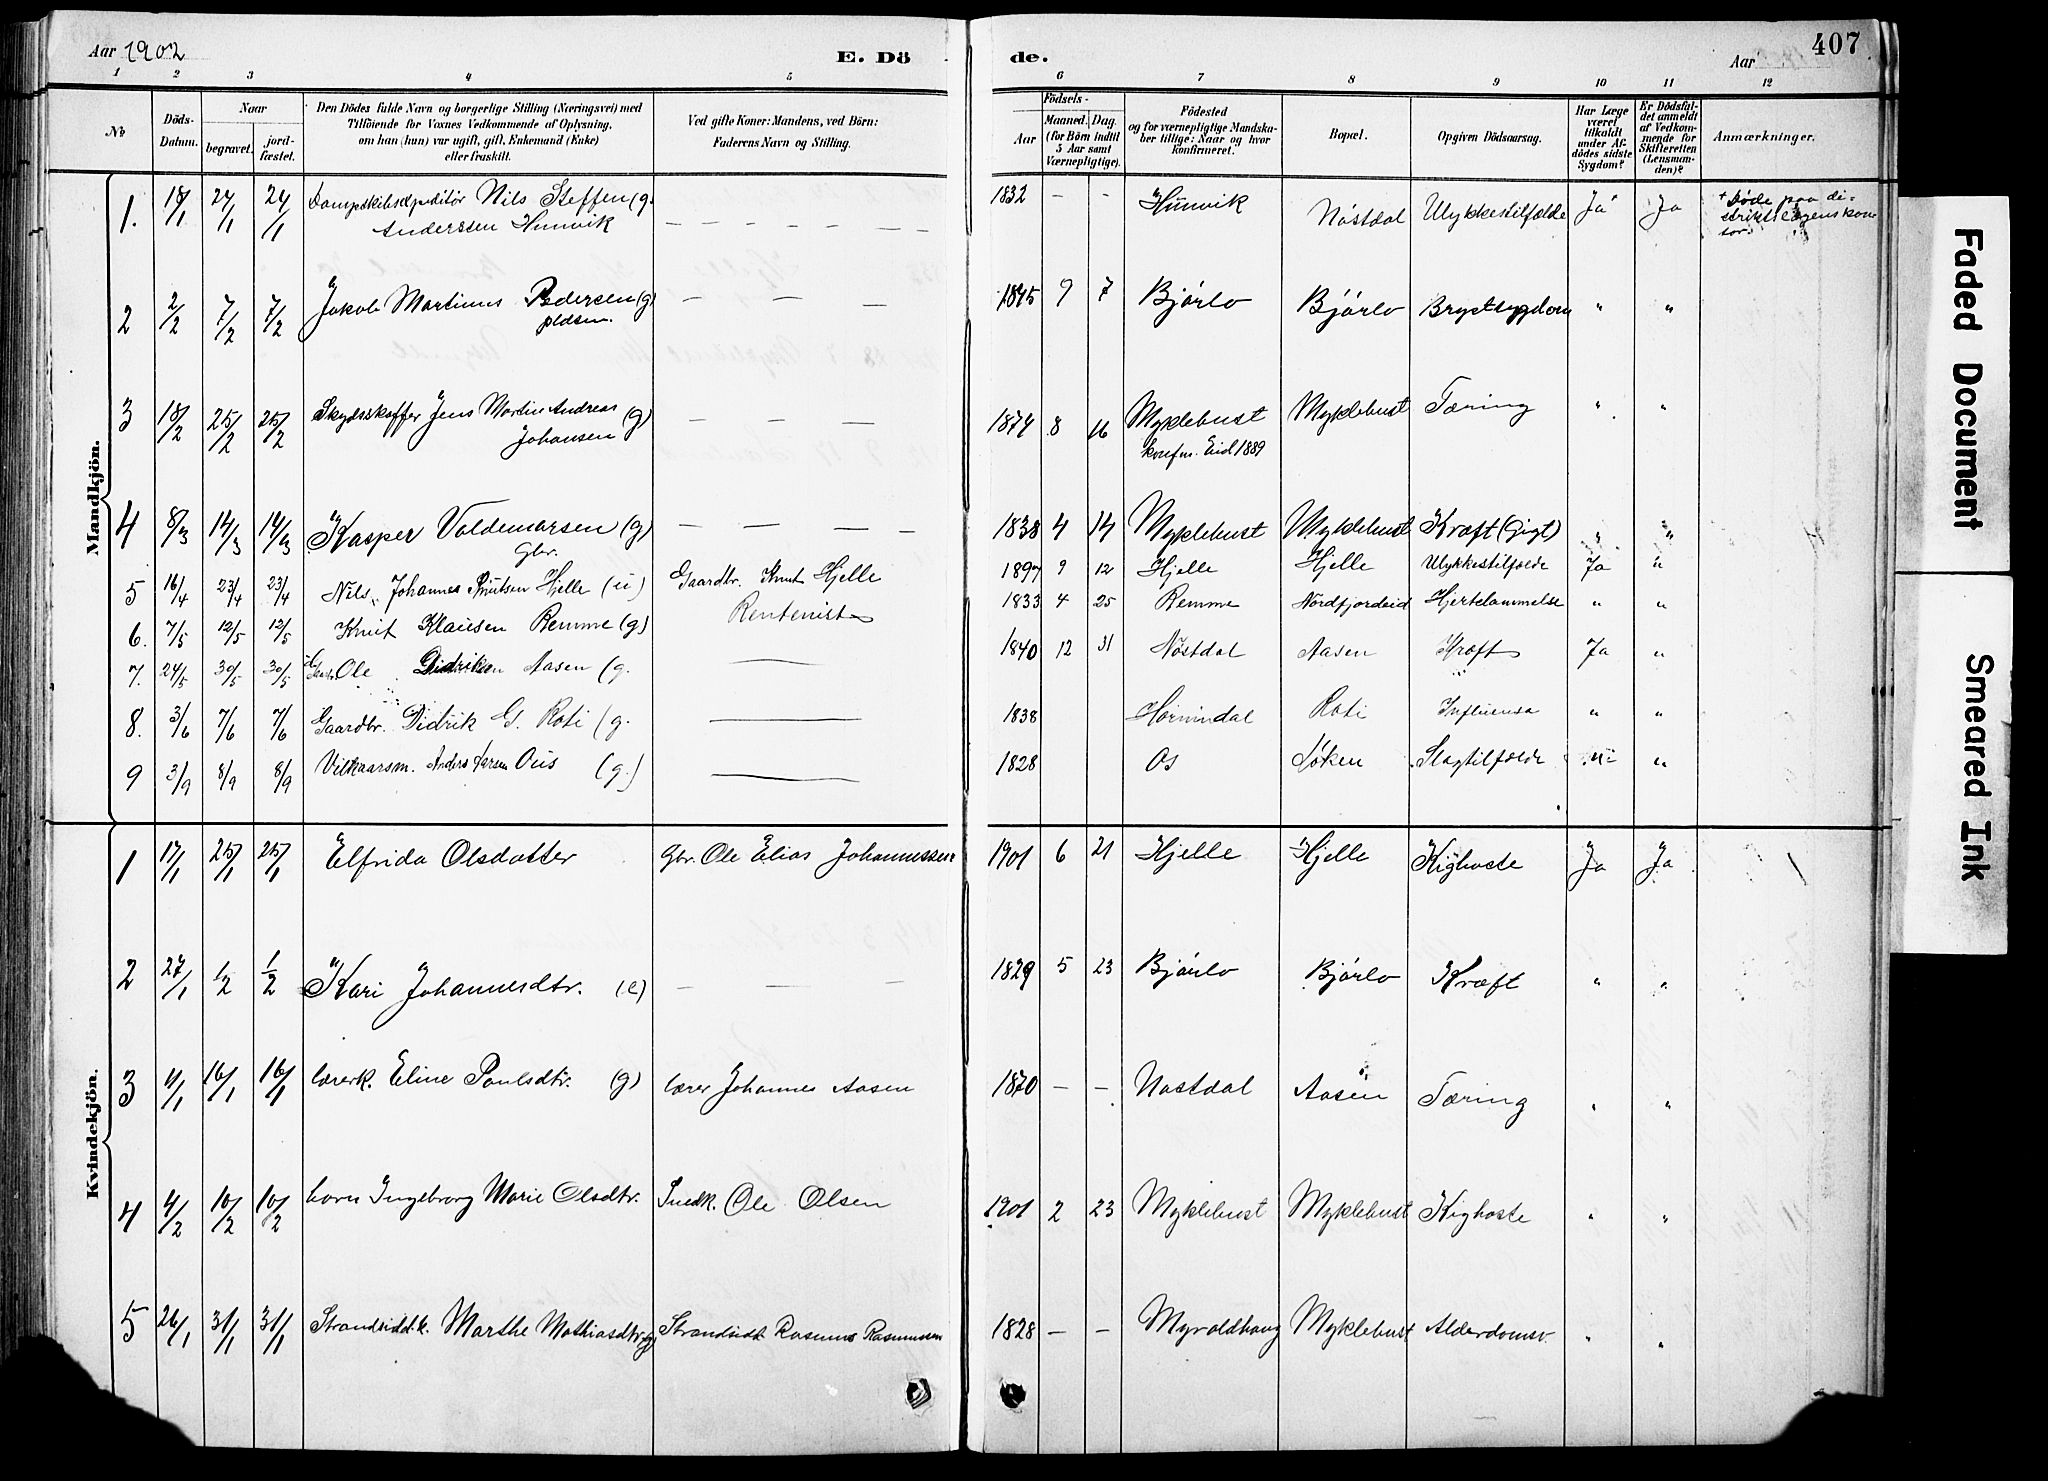 Aar 1902 E. Dö de. Aar 407
1 2 3 4 5 6 7 8 9 10 11 12
No Döds-Datum. Naar begravet. jord-fæstet. Den Dödes fulde Navn og borgerlige Stilling (Næringsvei) med Tilföiende for Voxnes Vedkommende af Oplysning, om han (hun) var ugift, gift, Enkemand (Enke) eller fraskilt. Ved gifte Koner: Mandens, ved Börn: Faderens Navn og Stilling. Födsels- Aar Maaned. Dag. (for Börn indtil 5 Aar samt Værnepligtige). Födested og for værnepligtige Mandska-ber tillige: Naar og hvor konfirmeret. Bopæl. Opgiven Dödsaarsag. Har Læge været tilkaldt under Af-dödes sidste Sygdom? Er Dödsfal-det anmeldt af Vedkom-mende for Skifteretten (Lensman-den)? Anmærkninger.
Mandkjön.
1. 18/1 24/1 24/1 Dampskibsexpeditör Nils Steffen (g. 1832 — — Hunvik Nöstdal Ulykkestilfælde Ja Ja + Döde paa di-
Anderssen Hunvik — — — — — — — striktslægens kon
tor.
2 2/2 7/2 7/2 Jakob Martinus Pedersen (g) — — — 1845 9 7 Bjórlo Bjórlo Brystsygdom " "
pldsm.
3 18/2 25/2 25/2 Skydsskaffer Jens Martin Andreas (g) — — — 1874 8 16 Myklebust Myklebust Tæring " "
Johansen konfm. Eid 1889
4 8/3 14/3 14/3 Kasper Valdemarsen (g) — — — — 1838 4 14 Myklebust Myklebust Kræft (Gigt) " "
Gbr.
5 16/4 23/4 23/4 Nils Johannes Knutsen Hjelle (u) Gaardbr. Knut Hjelle 1897 9 12 Hjelle Hjelle Ulykkestilfælde Ja "
6. 7/5 12/5 12/5 Knut Klausen Remme (g) Rentenist 1833 4 25 Remme Nordfjordeid Hjertelammelse " "
7. 24/5 30/5 30/5 Ole Didriksen Aasen (g. — 1840 12 31 Nöstdal Aasen Kræft Ja "
8. 3/6 7/6 7/6 Gaardbr. Didrik G. Roti (g. — 1838 Hornindal Roti Influensa " "
9 3/9 8/9 8/9 Vilkaarsm. Anders Larsen Ous (g.) — 1828 Os Löken Slagtilfælde " "
Kvindekjön.
1 17/1 25/1 25/1 Elfrida Olsdatter Gbr. Ole Elias Johannessen 1901 6 21 Hjelle Hjelle Kighoste Ja Ja
2 27/1 1/2 1/2 Kari Johannesdtr. (e) — — — 1829 5 23 Bjórlo Bjórlo Kræft " "
3 11/1 16/1 16/1 lærerk. Eline Paulsdtr. (g) lærer Johannes Aasen 1870 — — Nostdal Aasen Tæring " "
4 4/2 10/2 10/2 barn Ingeborg Marie Olsdtr. Snedk. Ole Olsen 1901 2 23 Myklebust Myklebust Kighoste " "
5 26/1 31/1 31/1 Strandsidd.k. Marthe Mathiasdtr (g) Strandsidd. Rasmus Rasmussen 1828 — — Myroldhaug Myklebust Alderdomsv. " "
Faded Document
Smeared Ink